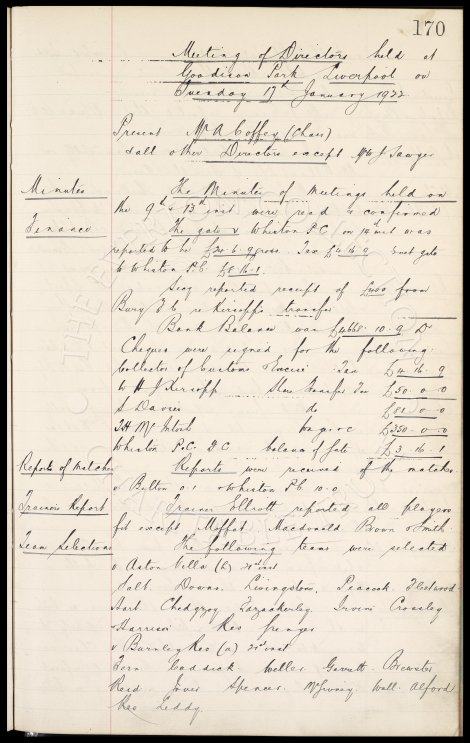 170
Meeting of Directors held at
Goodison Park Liverpool on
Tuesday 17th January 1922
Present Mr A Coffey (Chair)
& all other Directors except Mr J Sawyer
Minutes
The Minutes of Meetings held on
the 9th & 13th inst were read & confirmed
Finance
The gate v Whiston P.C. on 14th inst was
reported to be £24.6.9 gross. Tax £4.16.9 & net gate
to Whiston P.C. £8.16.1.
Secy reported receipt of £400 from
Bury F.C. re Kirsopp's transfer
Bank Balance was £4668.10.9 Dr
Cheques were signed for the following:
Collector of Customs & Excise Tax £4.16.9
W H J Kirsopp Share Transfer Fee £50.0.0
S Davies do £81.0.0
T H McIntosh wages &c £350.0.0
Whiston P.C. F.C. balance of gate £3.16.1
Reports of Matches
Reports were received of the matches
v Bolton 0.1 & Whiston P.C. 10.0
Trainers Report
Trainer Elliott reported all players
fit except Moffat Macdonald Brown & Smith.
Team Selections
The following teams were selected
v Aston Villa (h) 21st inst
Salt. Downs. Livingstone. Peacock. Fleetwood.
Hart Chedgzoy Fazackerley Irvine Crossley
& Harrison Res Spencer
v Burnley Res (a) 21st inst
Fern Caddick. Weller Garratt. Brewster
Reid. Jones Spencer. Wall. Alford
Res Leddy.